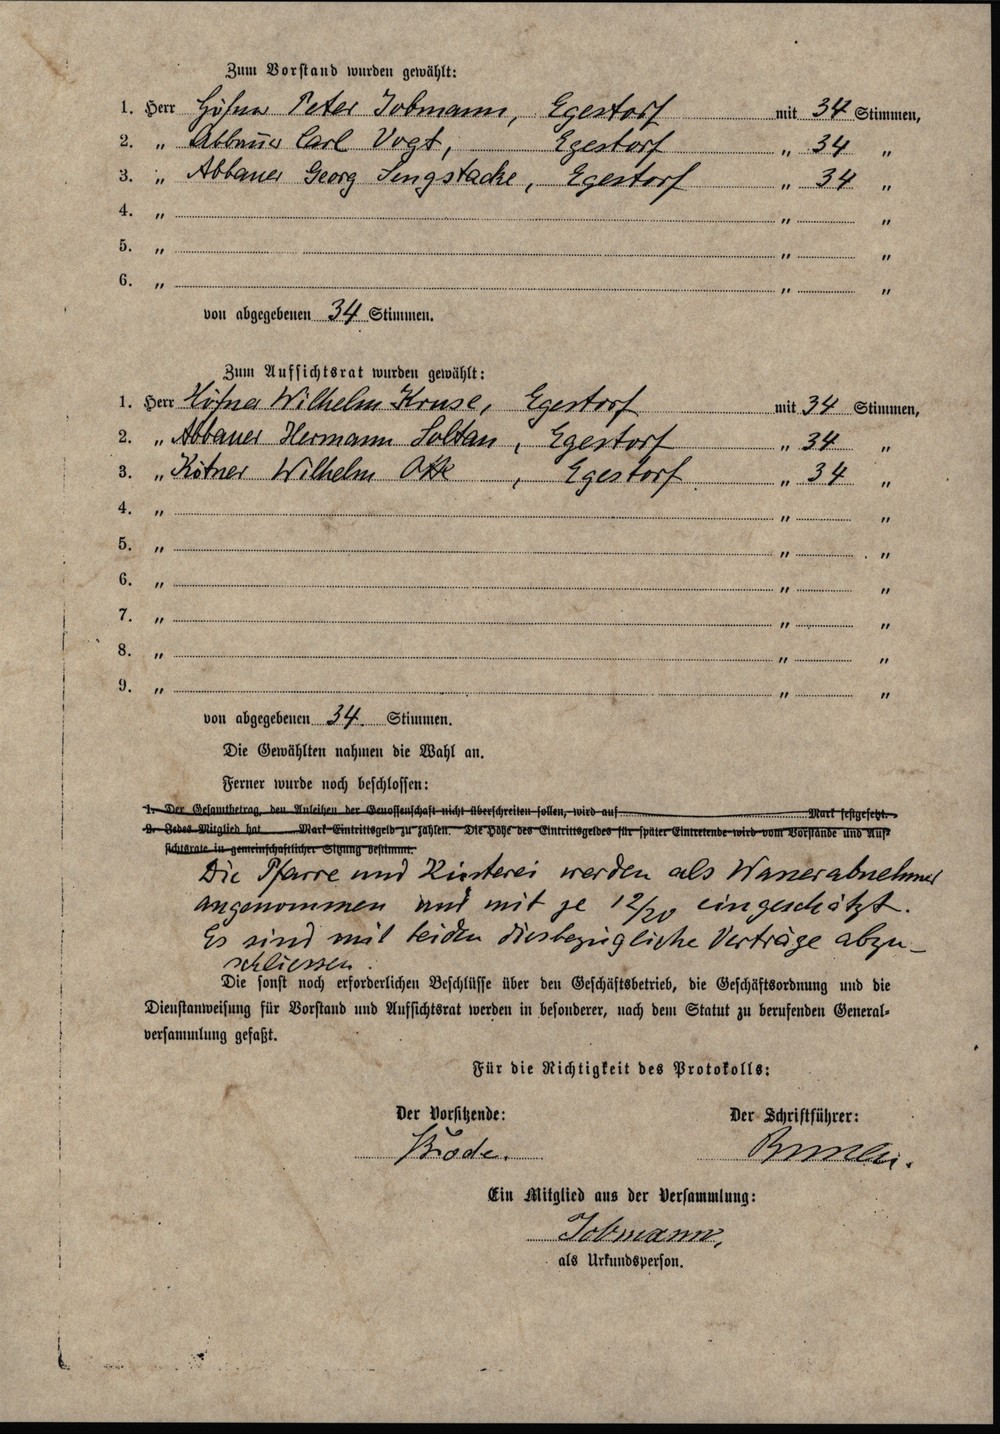 Zum Vorstand wurden gewählt:
1. Herr Höfner Peter Jobmann, Egestorf mit 34 Stimmen,
2. „ Abbauer Carl Vogt, Egestorf „ 34 „
3. „ Abbauer Georg Sengstacke, Egestorf „ 34 „
4. „ „ „
5. „ „ „
6. „ „ „
von abgegebenen 34 Stimmen.
Zum Aufsichtsrat wurden gewählt:
1. Herr Höfner Wilhelm Kruse, Egestorf mit 34 Stimmen,
2. „ Abbauer Hermann Soltau, Egestorf „ 34 „
3. „ Kötner Wilhelm Otte, Egestorf „ 34 „
4. „ „ „
5. „ „ „
6. „ „ „
7. „ „ „
8. „ „ „
9. „ „ „
von abgegebenen 34. Stimmen.
Die Gewählten nahmen die Wahl an.
Ferner wurde noch beschlossen:
1. Der Gesamtbetrag, den Anleihen der Genossenschaft nicht überschreiten sollen, wird auf Mark festgesetzt.
2. Jedes Mitglied hat Mark Eintrittsgeld zu zahlen. Die Höhe des Eintrittsgeldes für später Eintretende wird vom Vorstande und Auf-
sichtsrate in gemeinschaftlicher Sitzung bestimmt.
Die Pfarre und Küsterei werden als Wasserabnehmer
angenommen und mit je 12/20 eingeschätzt.
Es sind mit beiden diesbezügliche Verträge abzu-
schliessen.
Die sonst noch erforderlichen Beschlüsse über den Geschäftsbetrieb, die Geschäftsordnung und die
Dienstanweisung für Vorstand und Aufsichtsrat werden in besonderer, nach dem Statut zu berufenden General-
versammlung gefaßt.
Für die Richtigkeit des Protokolls:
Der Vorsitzende: Der Schriftführer:
Ein Mitglied aus der Versammlung:
Jobmann,
als Urkundsperson.